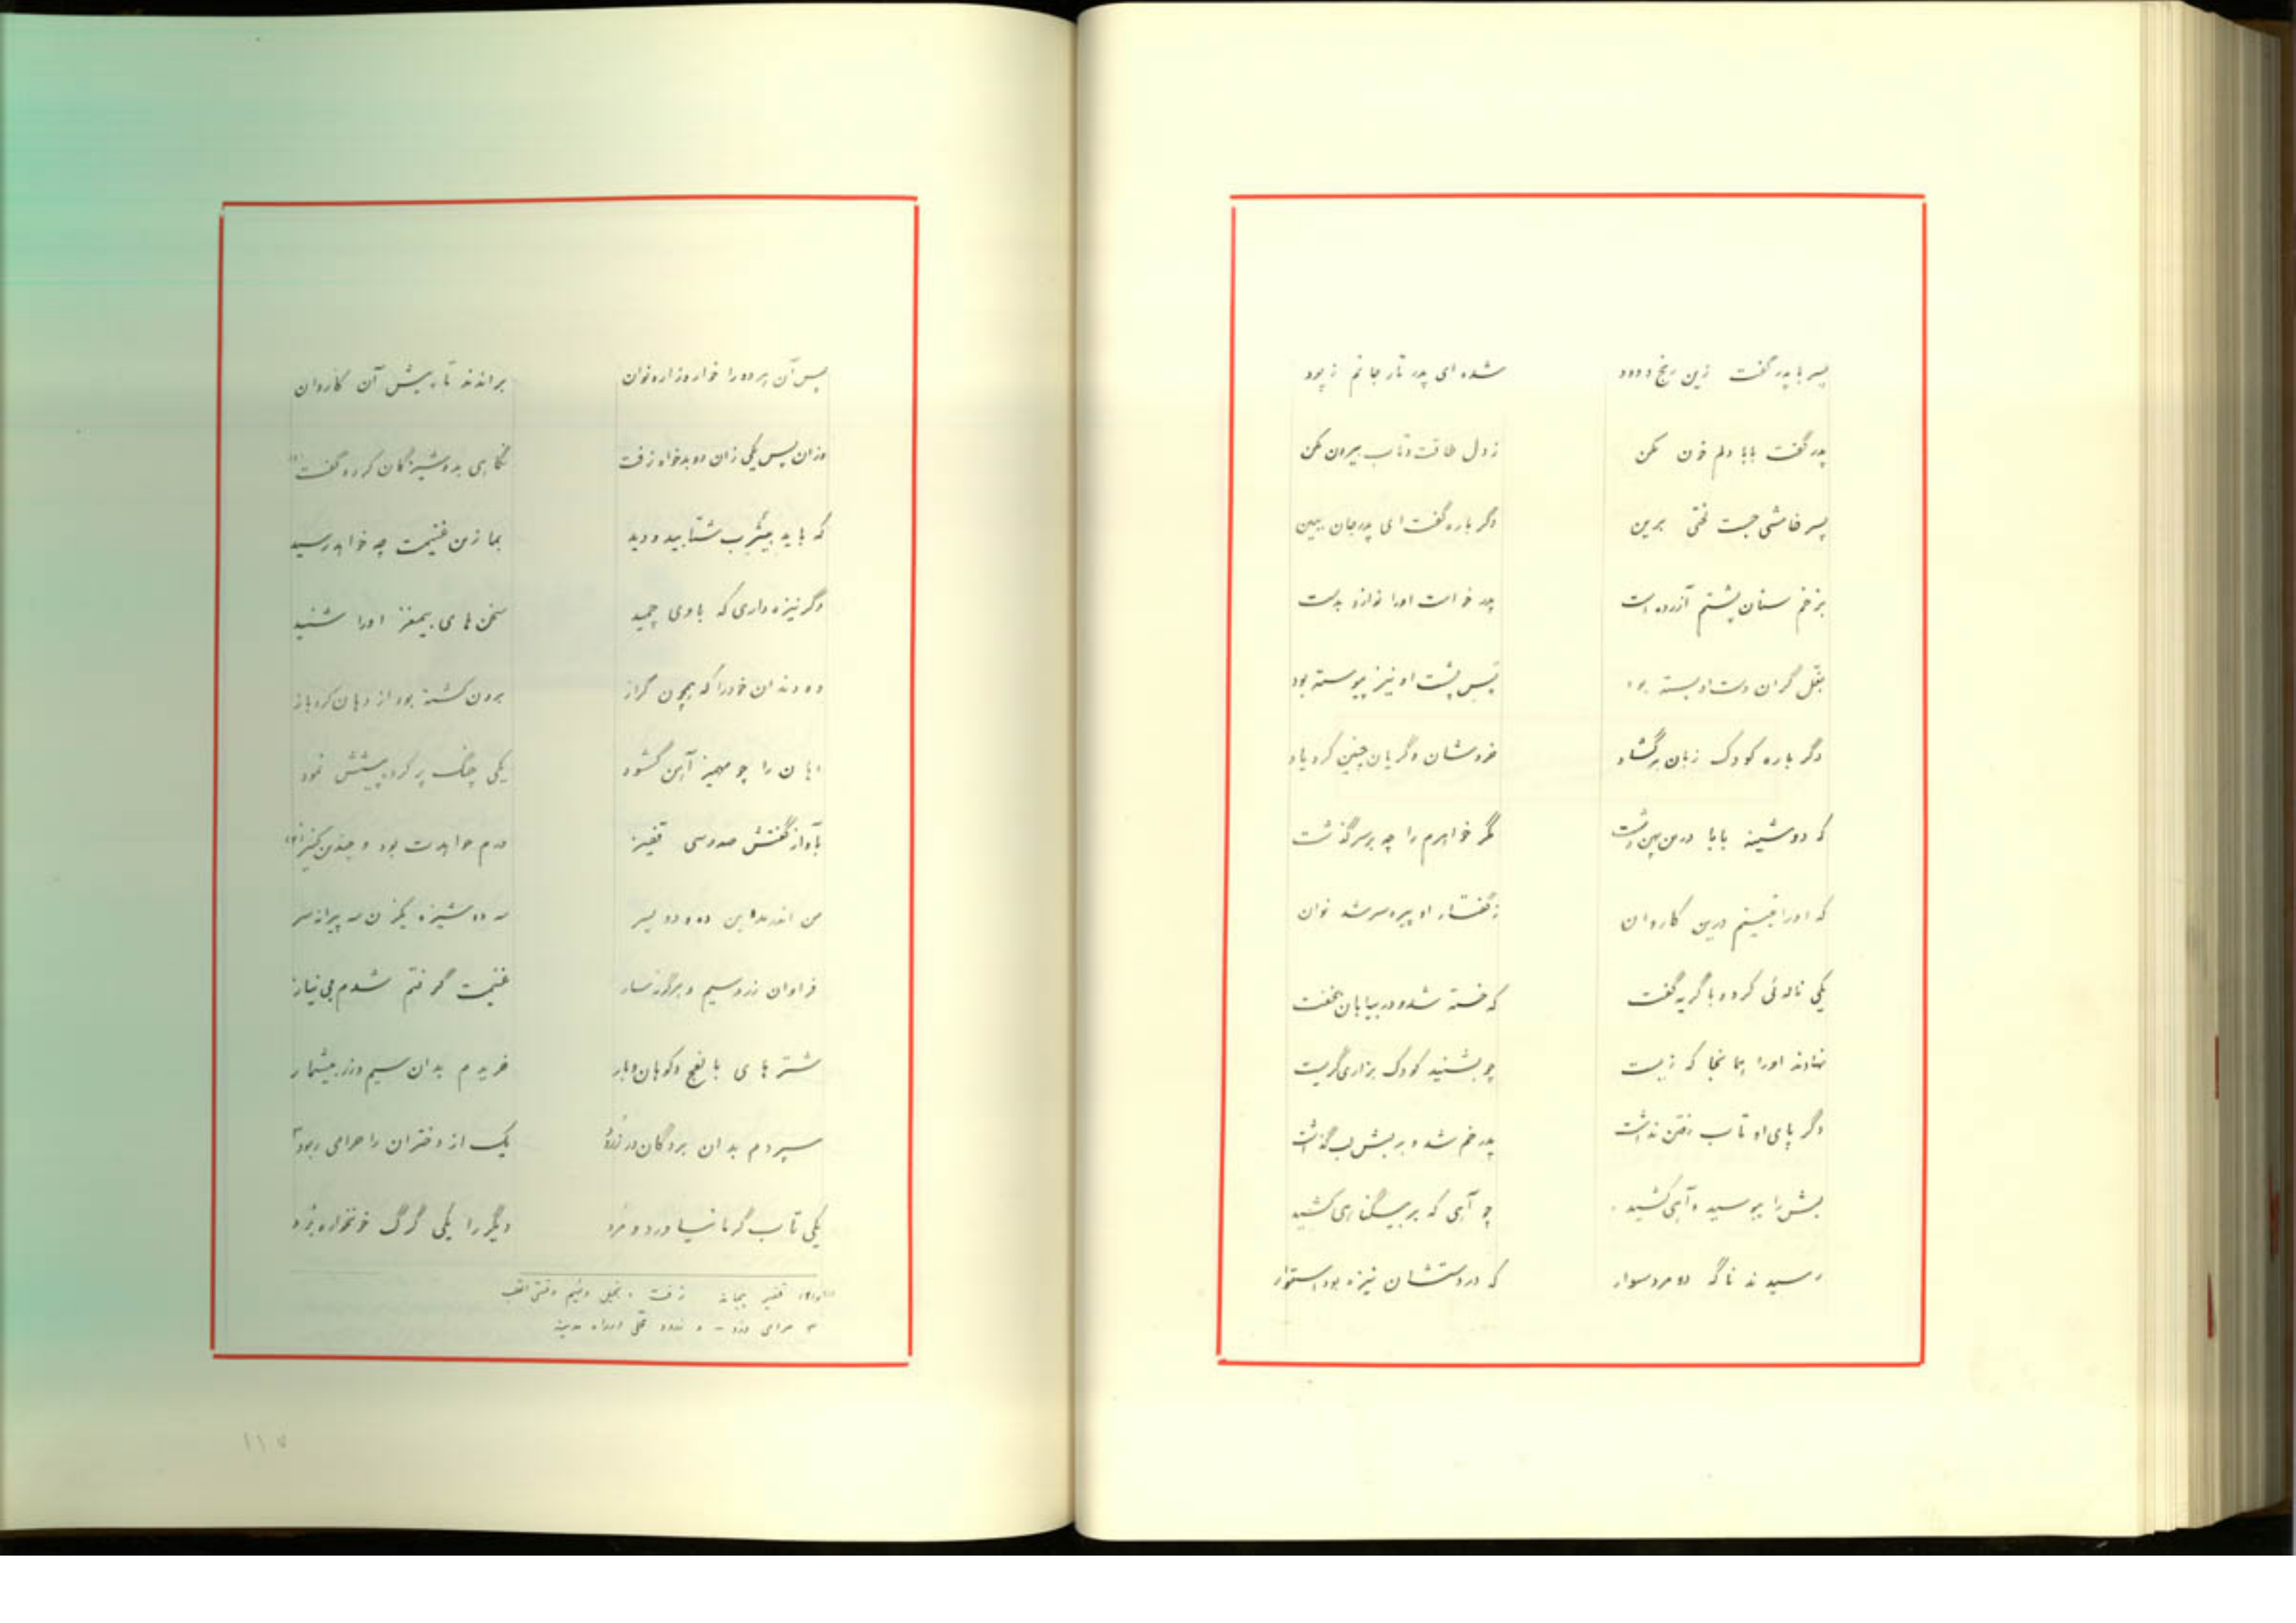 پسر با پدر گفت زین رنج و دود شده ای پدر تار جانم ز پود
پدر گفت بابا دلم خون مکن ز دل طاقت و تاب بیرون مکن
پسر خامشی جست لختی برین دگر باره گفت ای پدر جان ببین
بزخم سنان پشتم آزرده است پدر خواست اورا نوازد بدست
بغل گران دست او بسته بود پس پشت او نیز پیوسته بود
دگر باره کودک زبان برگشاد خروشان و گریان چنین کرد یاد
که دوشینه بابا درین پهن دشت مگر خواهرم را چه بر سر گذشت
که اورا نبینم درین کاروان ز گفتار او پیره سر شد نوان
یکی ناله ئی کرد و با گریه گفت که خسته شد و در بیابان بخفت
نهادند اورا همانجا که زیست چو بشنید کودک بزاری گریست
دگر پای او تاب رفتن نداشت پدر خم شد و بر لبش لب گذاشت
لبش را ببوسید و آهی کشید چو آهی که بر بیگناهی کشید
رسیدند ناگه دو مرد سوار که در دستشان نیزه بود استوار
پس آن برده را خوار و زار و نوان براندند تا پیش آن کاروان
وزان پس یکی زان دو بدخواه زفت نگاهی بدوشیزگان کرد و گفت
که باید بیثرب شتابید و دید بما زین غنیمت چه خواهد رسید
دگر نیزه داری که با وی چمید سخن های بیمغز اورا شنید
دو دندان خود را که همچون گراز برون گشته بود از دهان کرد باز
دهان را چو مهمیز آهن گشود یکی چنگ پر کرد پیشش نمود
بآواز گفتش صد و سی قفیز درم خواهدت بود و چندین کنیز
من اندر این ده و دو پسر سه دوشیزه یک زن سه پیرانه سر
فراوان زر و سیم و غنیمت گرفتم شدم بی نیاز
شتر های با نفج و کوهان و بار خریدم بدان سیم و زر بیشمار
سپردم بدان بردگان در یک از دختران را حرامی ربود
یکی تاب گرما نیاورد و مرد دیگر را یکی گرگ خونخواره برد
قفیز پیمانه زفت بخیل و لئیم
حرامی دزد
۱۱۵